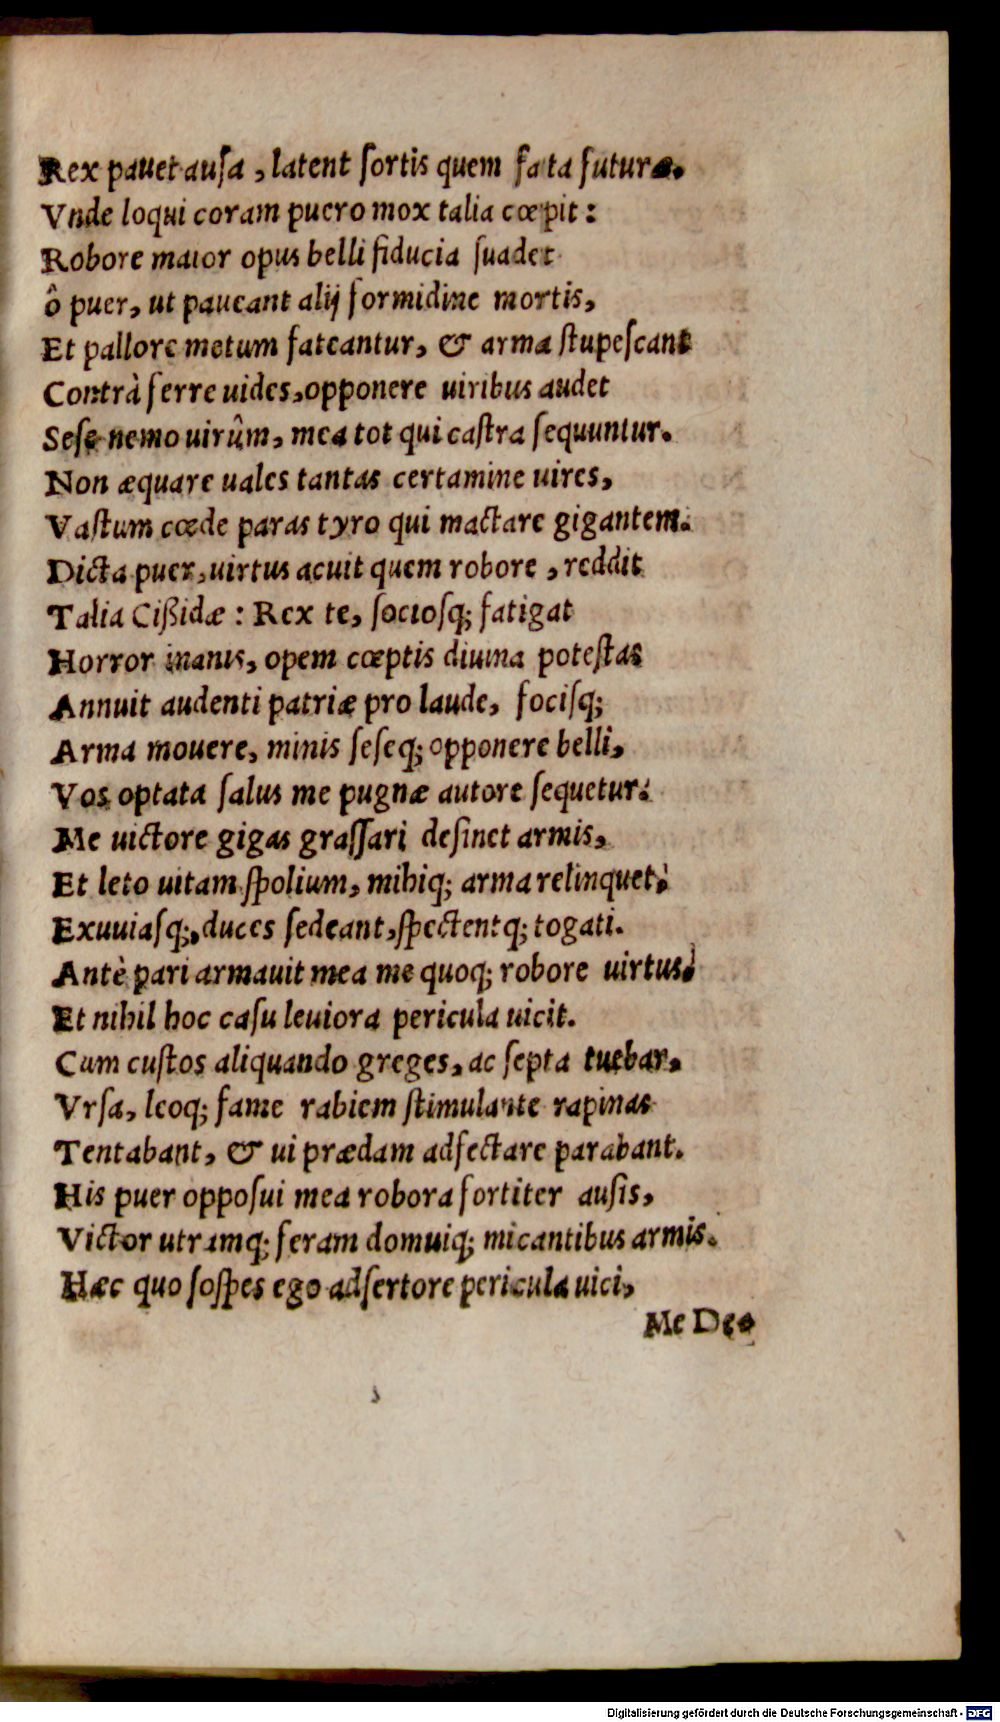 Rex pauet ausa, latent sortis quem fata futuræ.
Vnde loqui coram puero mox talia cœpit:
Robore maior opus belli fiducia suadet
ô puer, ut paueant alij formidine mortis,
Et pallore metum fateantur, & arma stupescant
Contrà ferre uides, opponere uiribus audet
Sese nemo uirûm, mea tot qui castra sequuntur.
Non æquare uales tantas certamine uires,
Vastum cœde paras tyro qui mactare gigantem.
Dicta puer, uirtus acuit quem robore, reddit
Talia Cißidæ: Rex te, sociosq; fatigat
Horror inanis, opem cœptis diuina potestas
Annuit audenti patriæ pro laude, focisq;
Arma mouere, minis seseq; opponere belli,
Vos optata salus me pugnæ autore sequetur.
Me uictore gigas grassari desinet armis,
Et leto uitam spolium, mihiq; arma relinquet,
Exuuiasq;, duces sedeant, spectentq; togati.
Antè pari armauit mea me quoq; robore uirtus,
Et nihil hoc casu leuiora pericula uicit.
Cum custos aliquando greges, ac septa tuebar,
Vrsa, leoq; fame rabiem stimulante rapinas
Tentabant, & ui prædam adfectare parabant.
His puer opposui mea robora fortiter ausis,
Victor utramq; feram domuiq; micantibus armis.
Hæc quo sospes ego adsertore pericula uici,
Me Deo
Digitalisierung gefördert durch die Deutsche Forschungsgemeinschaft - DFG